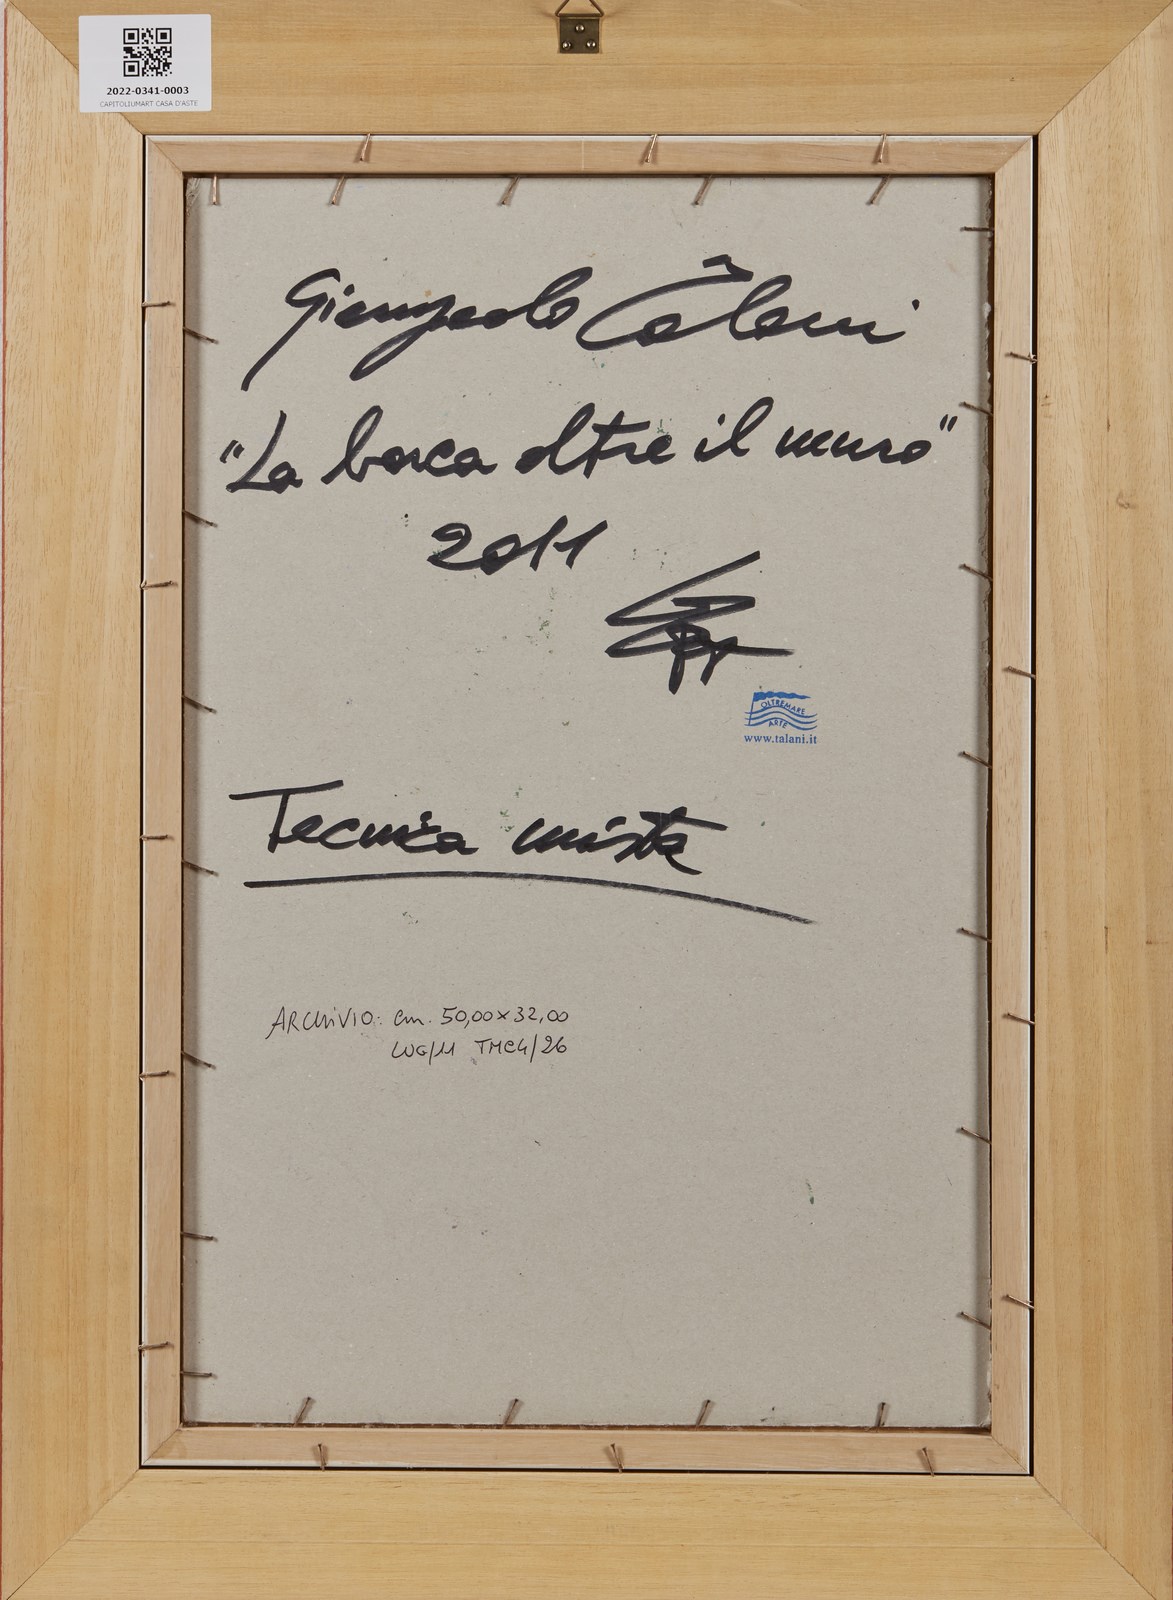 2022-0341-0003
CAPITOLIUMART CASA D'ASTE
Gianpaolo Talani
"La barca oltre il muro"
2011
OLTREMARE
ARTE
www.talani.it
Tecnica mista
ARCHIVIO: cm. 50,00x32,00
LUG/11 TMC4/26